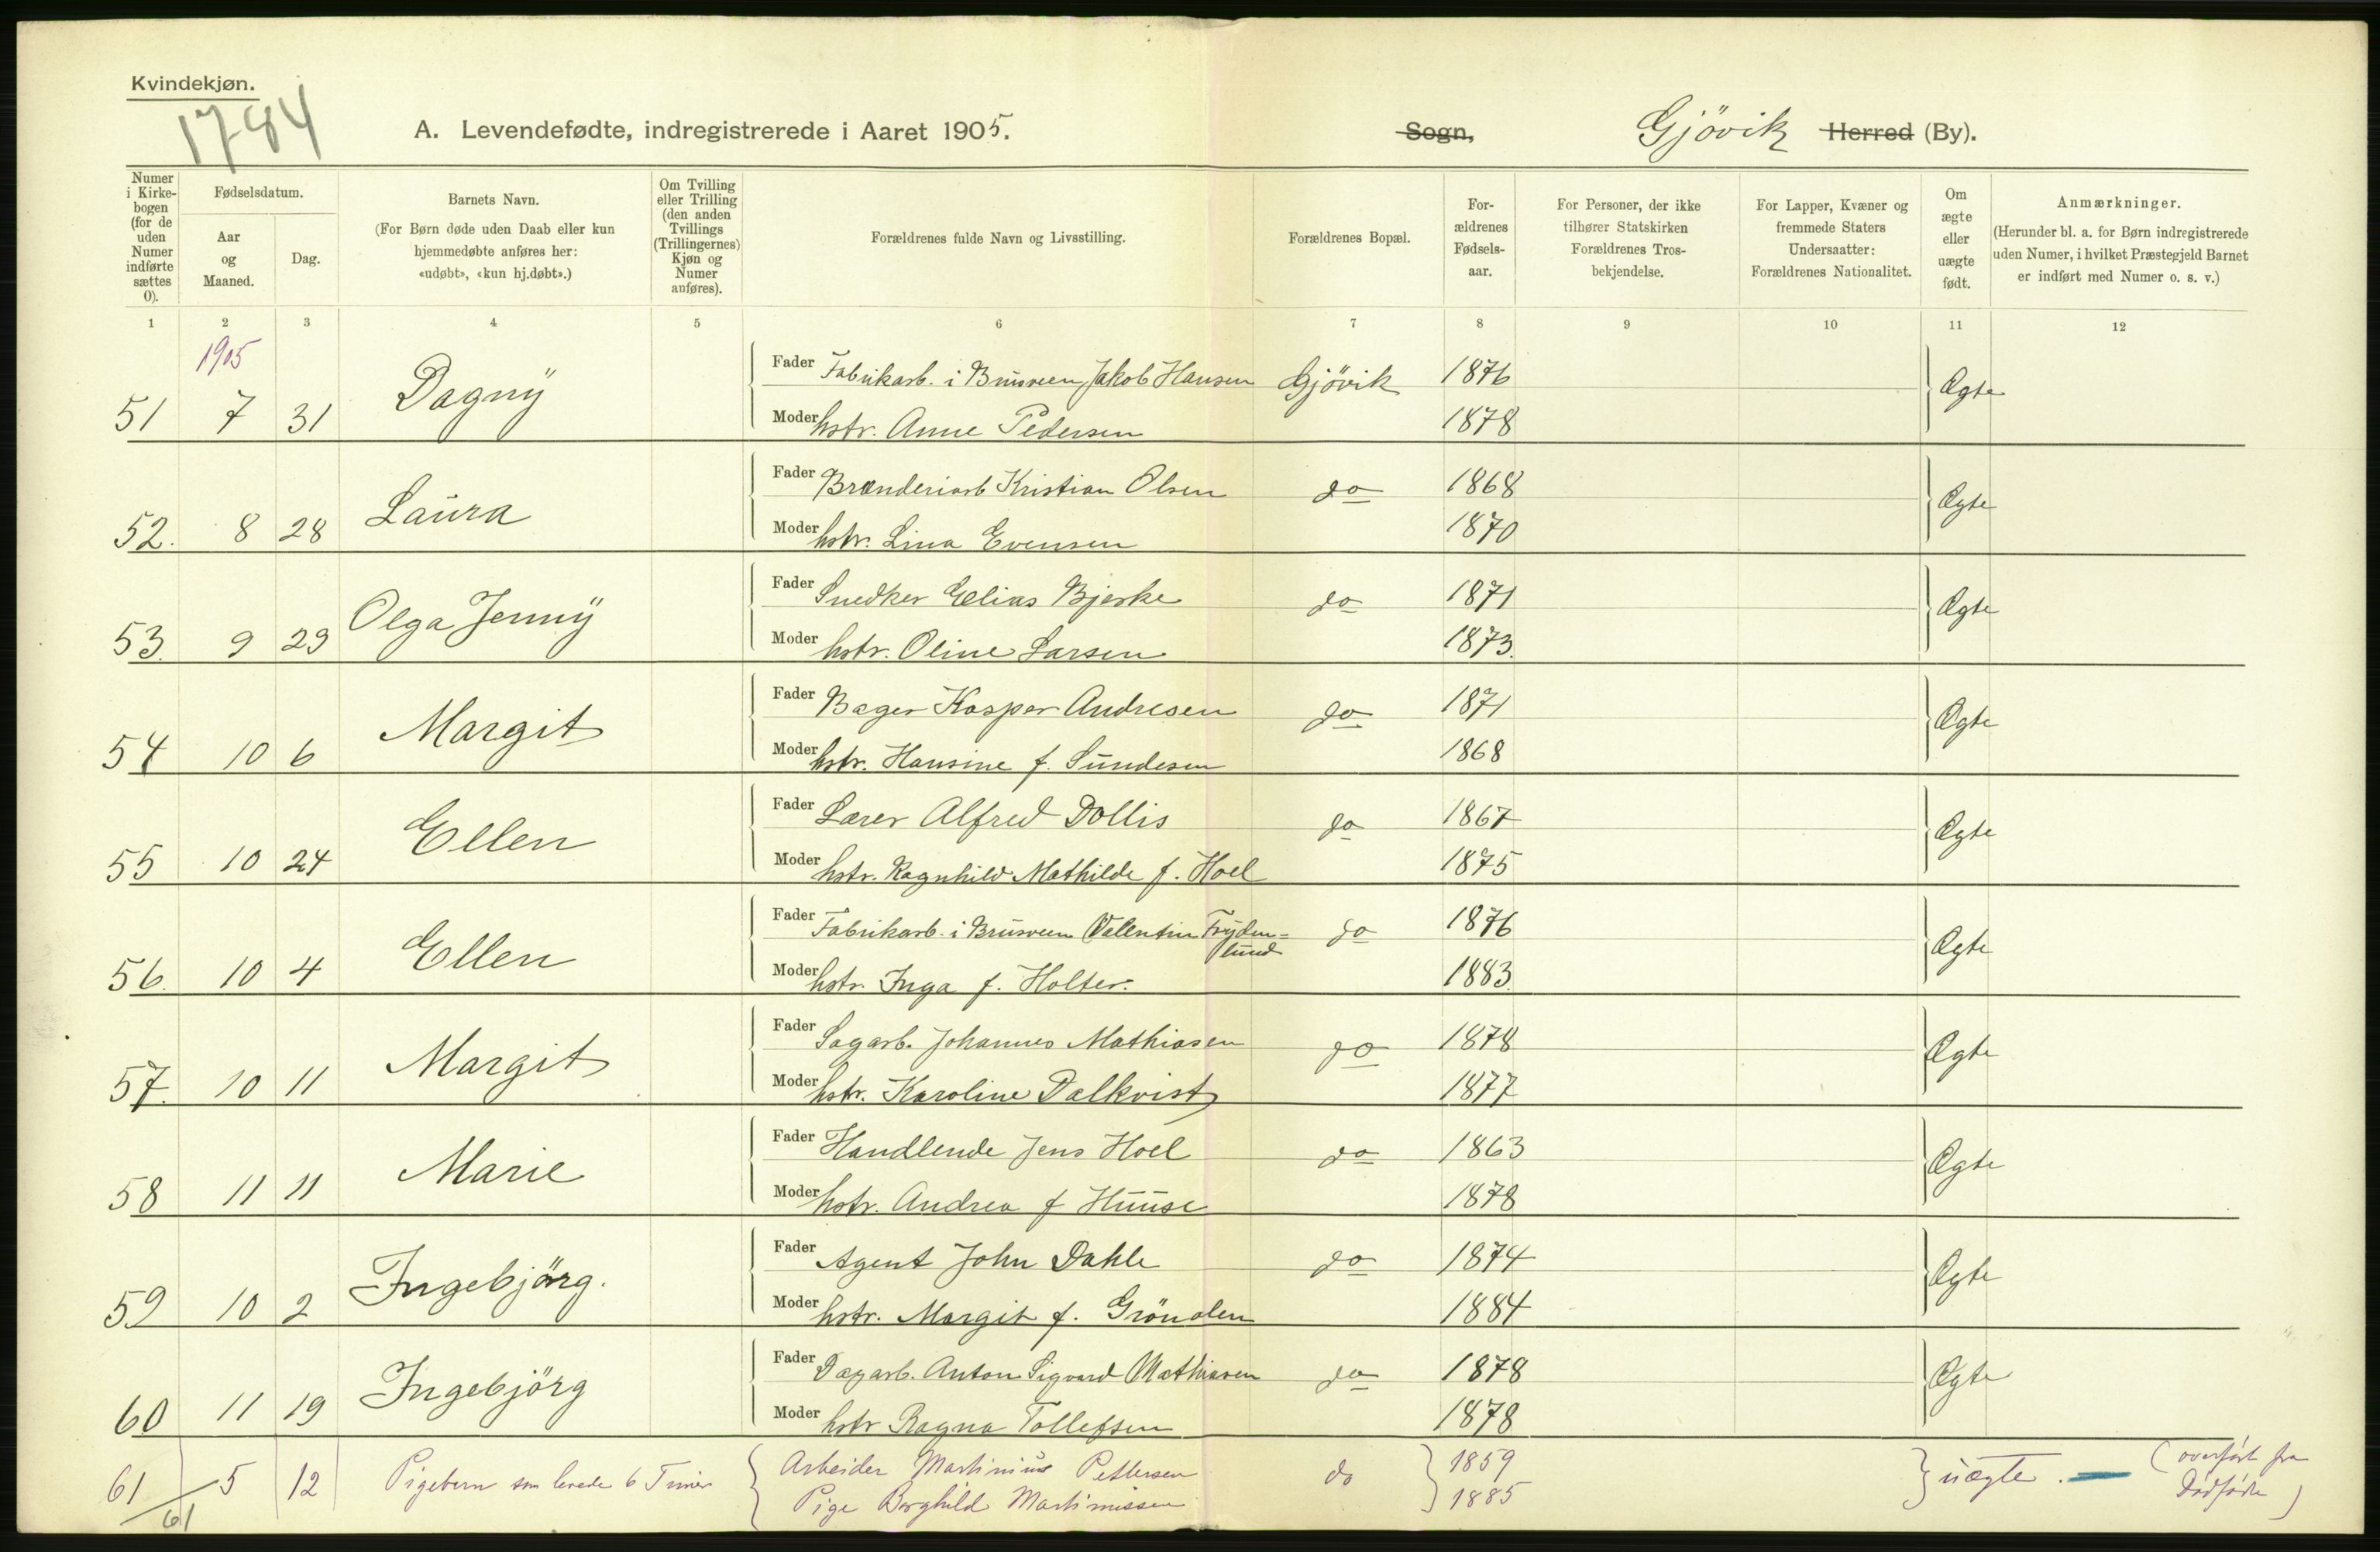 Kvindekjøn.
1784
A. Levendefødte, indregistrerede i Aaret 1905.
Sogn, Gjövik Herred (By).
Numer i Kirkebogen (for de uden Numer indførte sættes 0).
Fødselsdatum.
Aar og Maaned.
Dag.
Barnets Navn.
(For Børn døde uden Daab eller kun hjemmedøbte anføres her: «udøbt», «kun hj.døbt».)
Om Tvilling eller Trilling (den anden Tvillings (Trillingernes) Kjøn og Numer anføres).
Forældrenes fulde Navn og Livsstilling.
Forældrenes Bopæl.
Forældrenes Fødselsaar.
For Personer, der ikke tilhører Statskirken Forældrenes Trosbekjendelse.
For Lapper, Kvæner og fremmede Staters Undersaatter: Forældrenes Nationalitet.
Om ægte eller uægte født.
Anmærkninger.
(Herunder bl. a. for Børn indregistrerede uden Numer, i hvilket Præstegjeld Barnet er indført med Numer o. s. v.)
1 2 3 4 5 6 7 8 9 10 11 12
1905
Fader Fabrikarb. i Brusveen Jakob Hansen Gjövik 1876 Ægte
51 7 31 Dagny
Moder hstr. Anne Pedersen 1878
Fader Brænderiarb Kristian Olsen do 1868 Ægte
52. 8 28 Laura
Moder hstr. Lina Evensen 1870
Fader Snedker Elias Bjerke do 1871 Ægte
53. 9 29 Olga Jenny
Moder hstr. Oline Larsen 1873.
Fader Bager Kasper Andresen do 1871 Ægte
54 10 6 Margit
Moder hstr. Hansine f. Sundesen 1868
Fader Lærer Alfred Dollis do 1867 Ægte
55 10 24 Ellen
Moder hstr. Ragnhild Mathilde f. Hoel 1875
Fader Fabrikarb. i Brusveen Valentin Fryden=
lund do 1876 Ægte
56. 10 4 Ellen
Moder hstr. Inga f. Holter. 1883.
Fader Sagarb. Johannes Mathiasen do 1878 Ægte
57. 10 11 Margit
Moder hstr. Karoline Dalkvist 1877
Fader Handlende Jens Hoel do 1863 Ægte
58 11 11 Marie
Moder hstr. Andrea f Huuse 1878
Fader Agent John Dahle do 1874 Ægte
59 10 2 Ingebjörg.
Moder hstr. Margit f. Grönolen 1884
Fader Dagarb. Anton Sigvard Mathiasen do 1878 Ægte
60 11 19 Ingebjörg
Moder hstr Ragna Tollefsen 1878
61 5 12 Pigebarn som levede 6 Timer Arbeider Martinius Pettersen do 1859 uægte. (overført fra
Pige Borghild Martinissen 1885 Dødfødte)
61